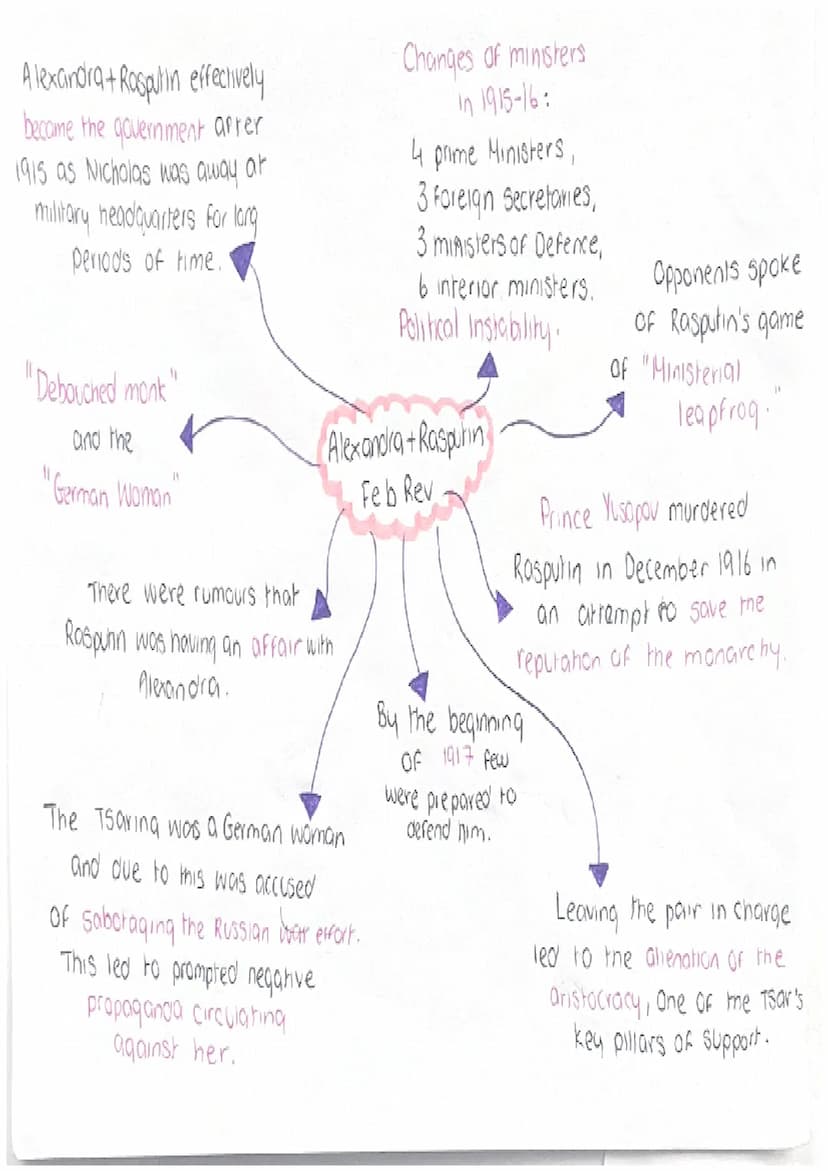 Alexandra+Rasputin effectively
became the government after
1915 as Nicholas was away at
military headquarters for long
periods of time.
Changes of ministers
in 1915-16:
4 prime Ministers,
3 foreign secretaries,
3 ministers of Defence,
6 interior ministers.
Political Instability.
Opponents spoke
of Rasputin's game
of "Ministerial
leapfrog."
"Debauched monk"
and the
"German Woman"
Alexandra+Rasputin
Feb Rev
Prince Yusopov murdered
Rasputin in December 1916 in
an attempt to save the
reputation of the monarchy.
There were rumours that
Rasputin was having an affair with
Alexandra.
By the beginning
of 1917 few
were prepared to
defend him.
The Tsarina was a German woman
and due to this was accused
of sabotaging the Russian war effort.
This led to prompted negative
propaganda circulating
against her.
Leaving the pair in charge
led to the alienation of the
aristocracy, one of the Tsar's
key pillars of support.